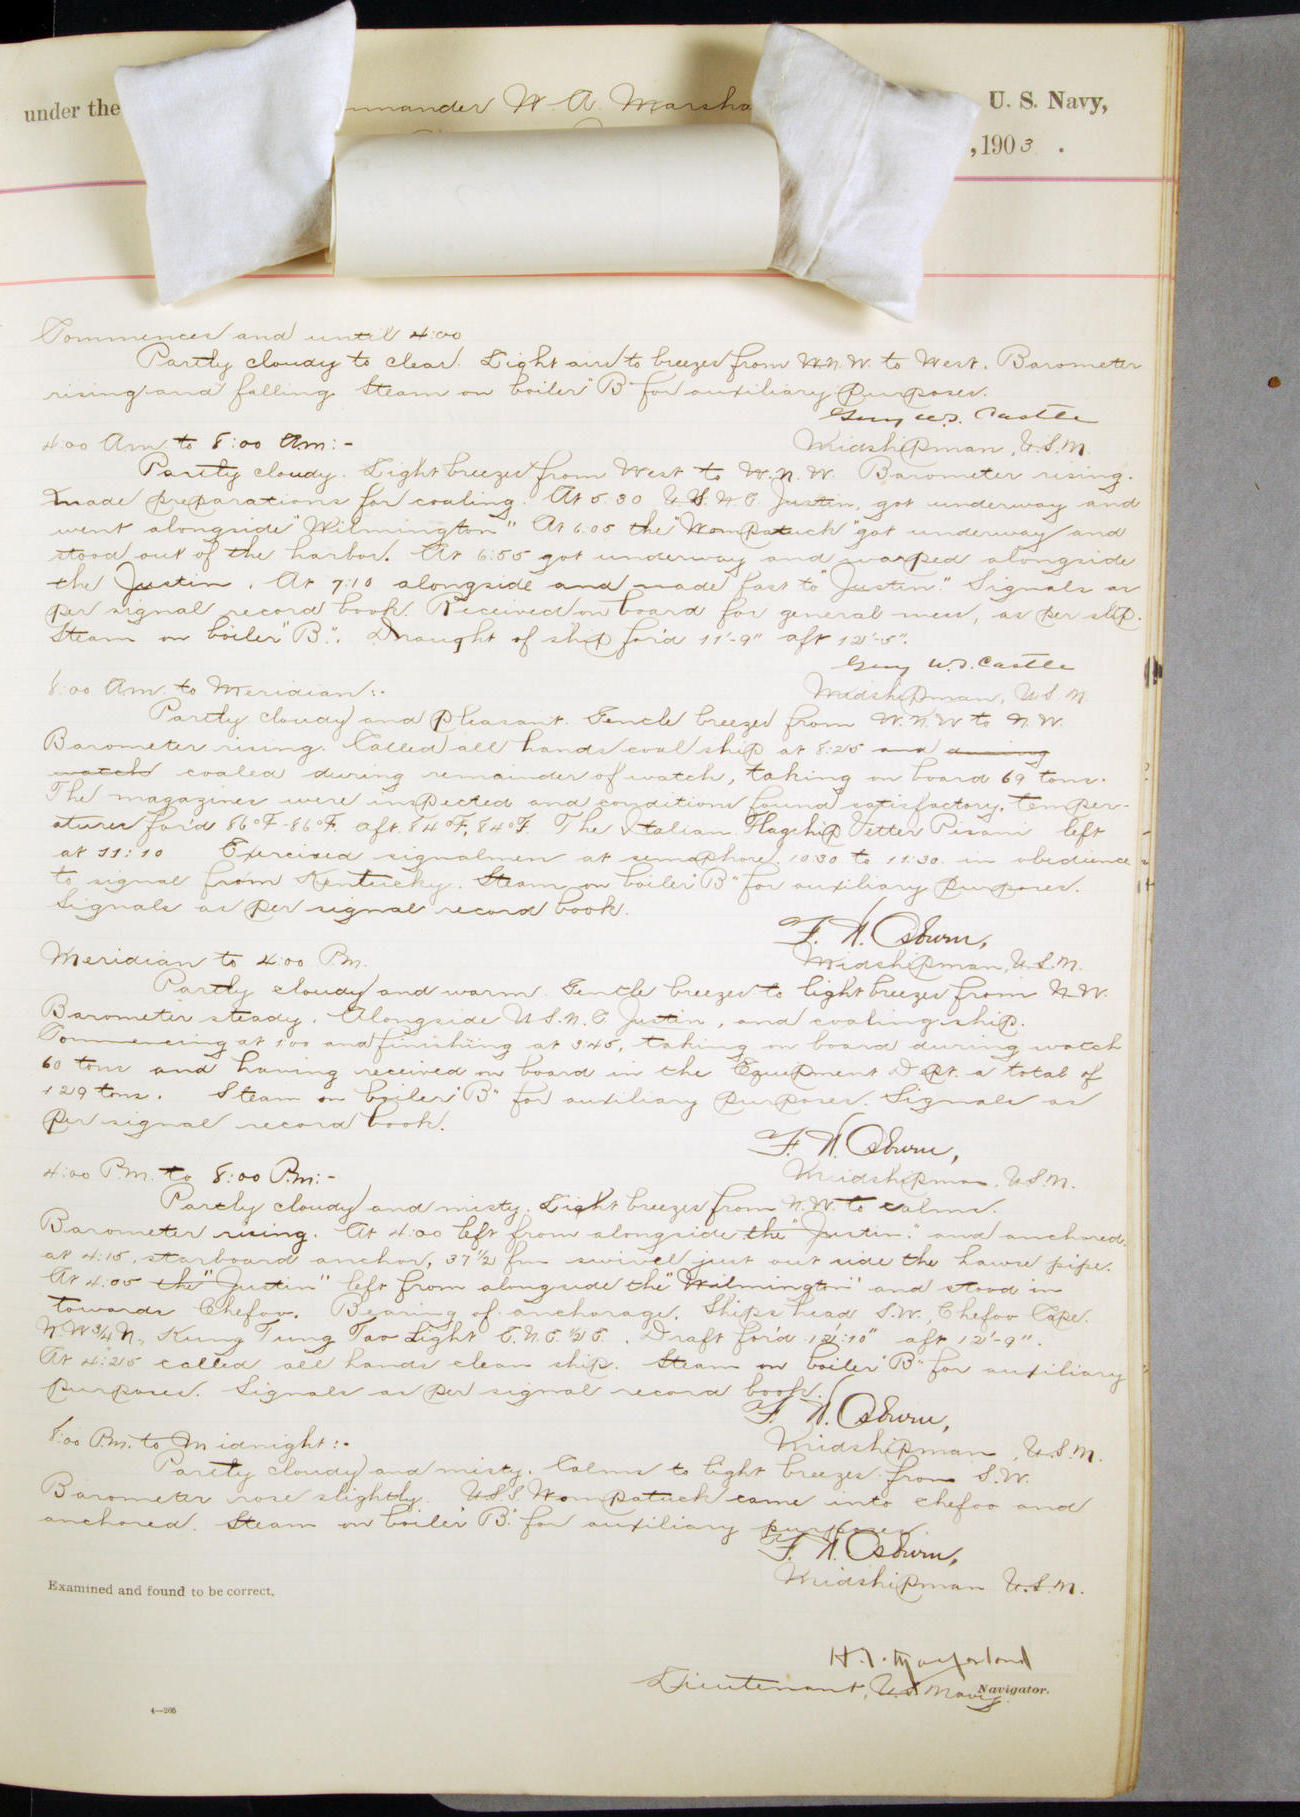 under the
mmander W. A. Marsha
U. S. Navy,
, 1903 .
Commences and until 4:00
Partly cloudy to clear. Light airs to breezes from W.N.W. to West. Barometer
rising and falling. Steam on boiler "B" for auxiliary purposes.
Guy W.S. Castle
Midshipman, U.S.N.
4:00 Am to 8:00 Am:-
Partly cloudy. Light breezes from West to W.N.W. Barometer rising.
Made preparations for coaling. At 5 30 U.S.N.C Justin, got underway and
went alongside "Wilmington" At 6.05 the "Wompatuck" got underway and
stood out of the harbor. At 6:55 got underway and warped alongside
the Justin. At 7:10 alongside and made fast to "Justin". Signals as
per signal record book. Received on board for general mess, as per slip.
Steam on boiler "B". Draught of ship for'd 11'-9" aft 12'-5".
Guy W.S. Castle
Midshipman, U.S.N.
8:00 Am. to Meridian:-
Partly cloudy and pleasant. Gentle breezes from W.N.W to N.W.
Barometer rising. Called all hands coal ship at 8:25 and during
watch coaled during remainder of watch, taking on board 69 tons.
The magazines were inspected and conditions found satisfactory, temper-
atures for'd 86°F-86°F. aft. 84°F, 84°F. The Italian Flagship Vetter Pisani left
at 11:10 Exercised signalmen at semaphore 10:30 to 11:30 in obedience
to signal from Kentucky. Steam on boiler "B" for auxiliary purposes.
Signals as per signal record book.
F. H. Osburn,
Midshipman, U.S.N.
Meridian to 4:00 Pm.
Partly cloudy and warm. Gentle breezes to light breezes from N.W.
Barometer steady. Alongside U.S.N.C Justin, and coaling ship.
Commencing at 1:00 and finishing at 3:45, taking on board during watch
60 tons and having received on board in the Equipment Dept. a total of
129 tons. Steam on boiler "B" for auxiliary purposes. Signals as
per signal record book.
F. H. Osburn,
Midshipman, U.S.N.
4:00 P.m. to 8:00 P.m:-
Partly cloudy and misty. Light breezes from N.W. to calms.
Barometer rising. At 4:00 left from alongside the "Justin" and anchored
at 4:15, starboard anchor, 37 1/2 fm swivel just out side the hawse pipe.
At 4:05 the "Justin" left from alongside the "Wilmington" and stood in
towards Chefoo. Bearing of anchorage, Ships head S.W., Chefoo Cape
N.W 3/4 N., Kung Tung Tao Light E.N.E 1/2 E. . Draft for'd 12':10" aft 12'-9".
At 4:25 called all hands clean ship. Steam on boiler "B" for auxiliary
purposes. Signals as per signal record book.
F. H. Osburn,
Midshipman, U.S.N.
8:00 P.m. to Midnight:-
Partly cloudy and misty. Calms to light breezes from S.W.
Barometer rose slightly. U.S.S. Wompatuck came into chefoo and
anchored. Steam on boiler "B" for auxiliary purposes.
F. H. Osburn,
Midshipman U.S.N.
Examined and found to be correct.
Lieutenant, U.S. Navy
Navigator.
4—265